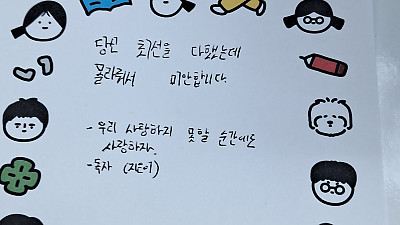 당신 최선을 다했는데
몰라줘서 미안합니다.
- 우리 사랑하지 못할 순간에도
사랑하자.
- 독자